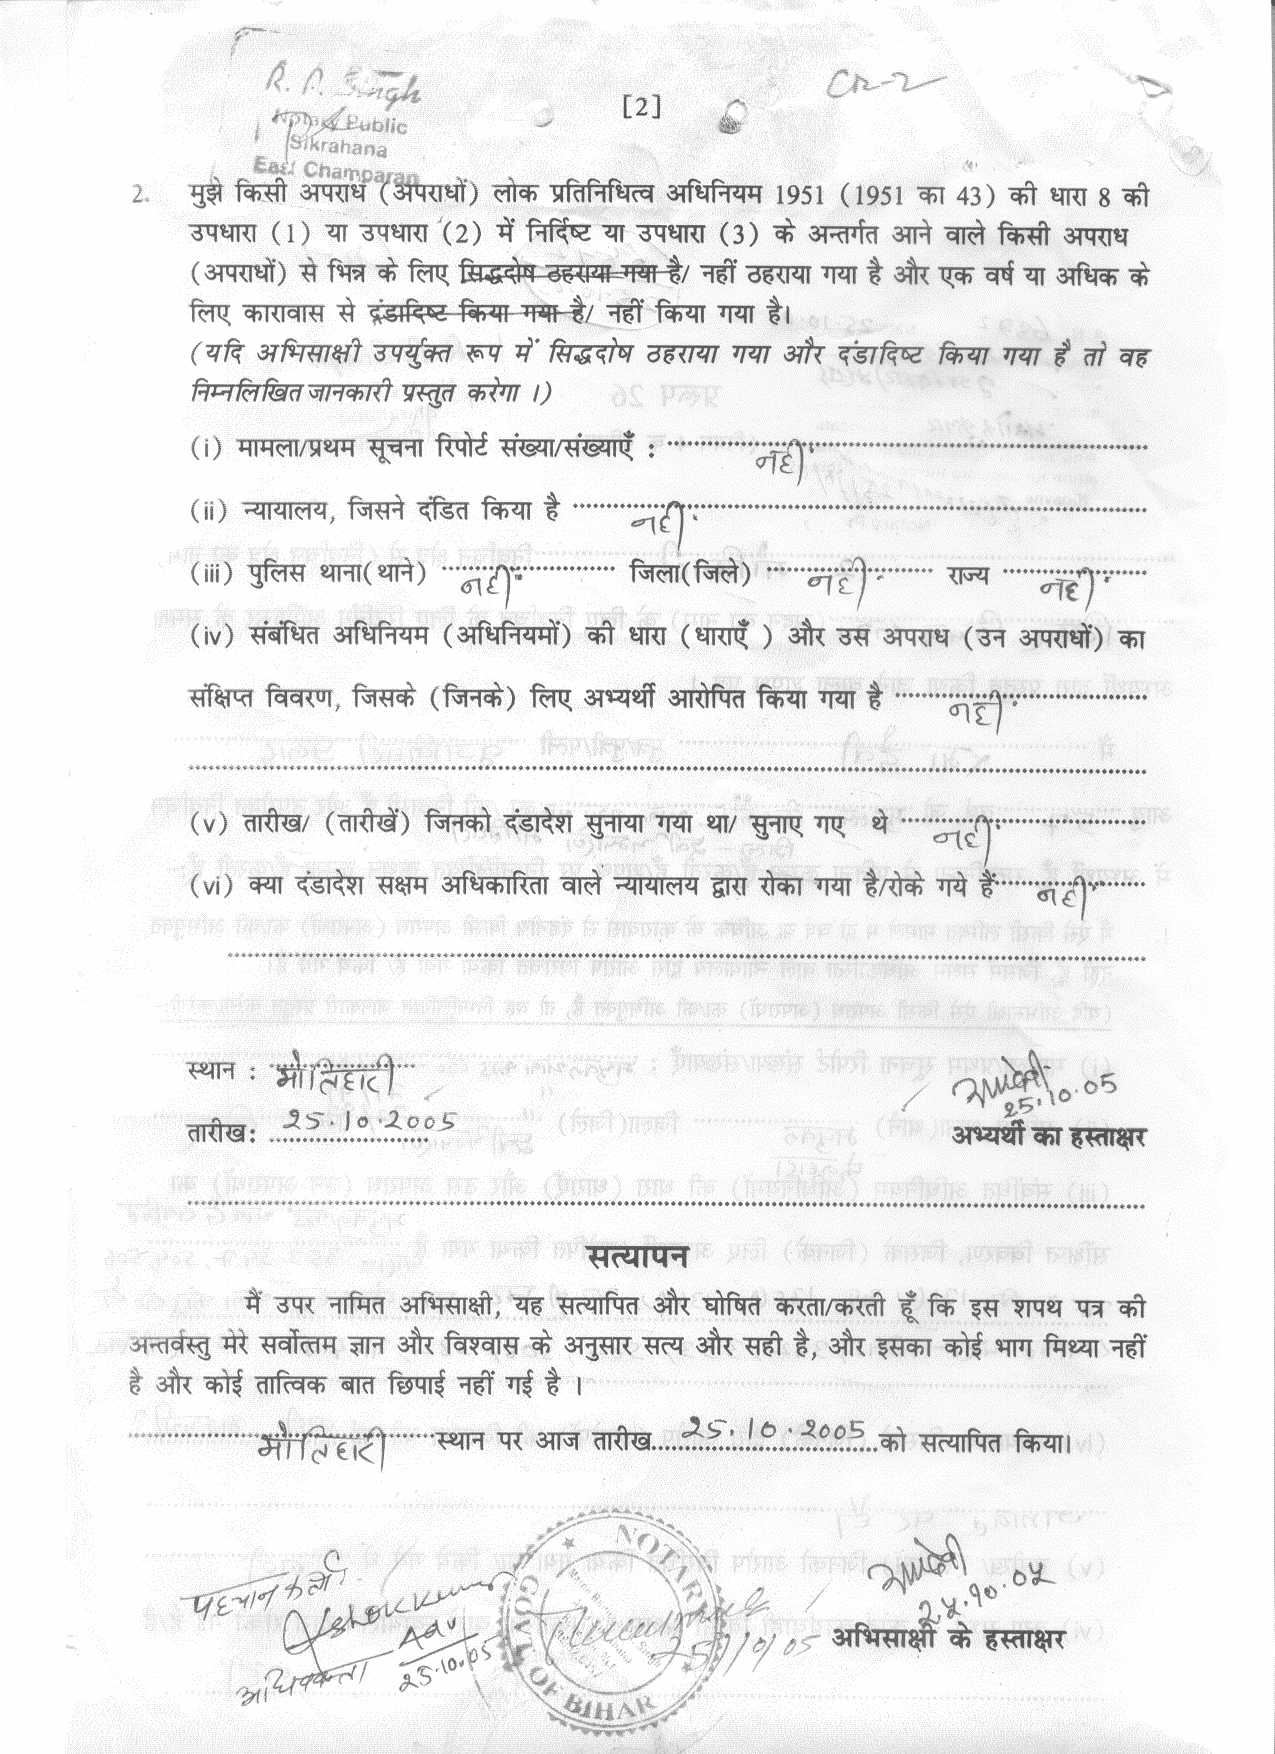 R. P. Singh
Notary Public
Sikrahana
East Champaran
[2]
CR-2
2. मुझे किसी अपराध (अपराधों) लोक प्रतिनिधित्व अधिनियम 1951 (1951 का 43) की धारा 8 की
उपधारा (1) या उपधारा (2) में निर्दिष्ट या उपधारा (3) के अन्तर्गत आने वाले किसी अपराध
(अपराधों) से भिन्न के लिए सिद्धदोष ठहराया गया है/ नहीं ठहराया गया है और एक वर्ष या अधिक के
लिए कारावास से दंडादिष्ट किया गया है/ नहीं किया गया है।
(यदि अभिसाक्षी उपर्युक्त रूप में सिद्धदोष ठहराया गया और दंडादिष्ट किया गया है तो वह
निम्नलिखित जानकारी प्रस्तुत करेगा ।)
(i) मामला/प्रथम सूचना रिपोर्ट संख्या/संख्याएँ : नहीं
(ii) न्यायालय, जिसने दंडित किया है नहीं
(iii) पुलिस थाना(थाने) नहीं जिला(जिले) नहीं राज्य नहीं
(iv) संबंधित अधिनियम (अधिनियमों) की धारा (धाराएँ ) और उस अपराध (उन अपराधों) का
संक्षिप्त विवरण, जिसके (जिनके) लिए अभ्यर्थी आरोपित किया गया है नहीं
(v) तारीख/ (तारीखें) जिनको दंडादेश सुनाया गया था/ सुनाए गए थे नहीं
(vi) क्या दंडादेश सक्षम अधिकारिता वाले न्यायालय द्वारा रोका गया है/रोके गये हैं नहीं
स्थान : मोतिहारी
25.10.05
तारीख: 25.10.2005
अभ्यर्थी का हस्ताक्षर
सत्यापन
मैं उपर नामित अभिसाक्षी, यह सत्यापित और घोषित करता/करती हूँ कि इस शपथ पत्र की
अन्तर्वस्तु मेरे सर्वोत्तम ज्ञान और विश्वास के अनुसार सत्य और सही है, और इसका कोई भाग मिथ्या नहीं
है और कोई तात्विक बात छिपाई नहीं गई है ।
मोतिहारी स्थान पर आज तारीख 25.10.2005 को सत्यापित किया।
पहचान कर्ता
Ashok Kumar
Adv
25.10.05
अधिवक्ता
NOTARY
GOVT. OF BIHAR
25/10/05
२.५.१०.०५
अभिसाक्षी के हस्ताक्षर